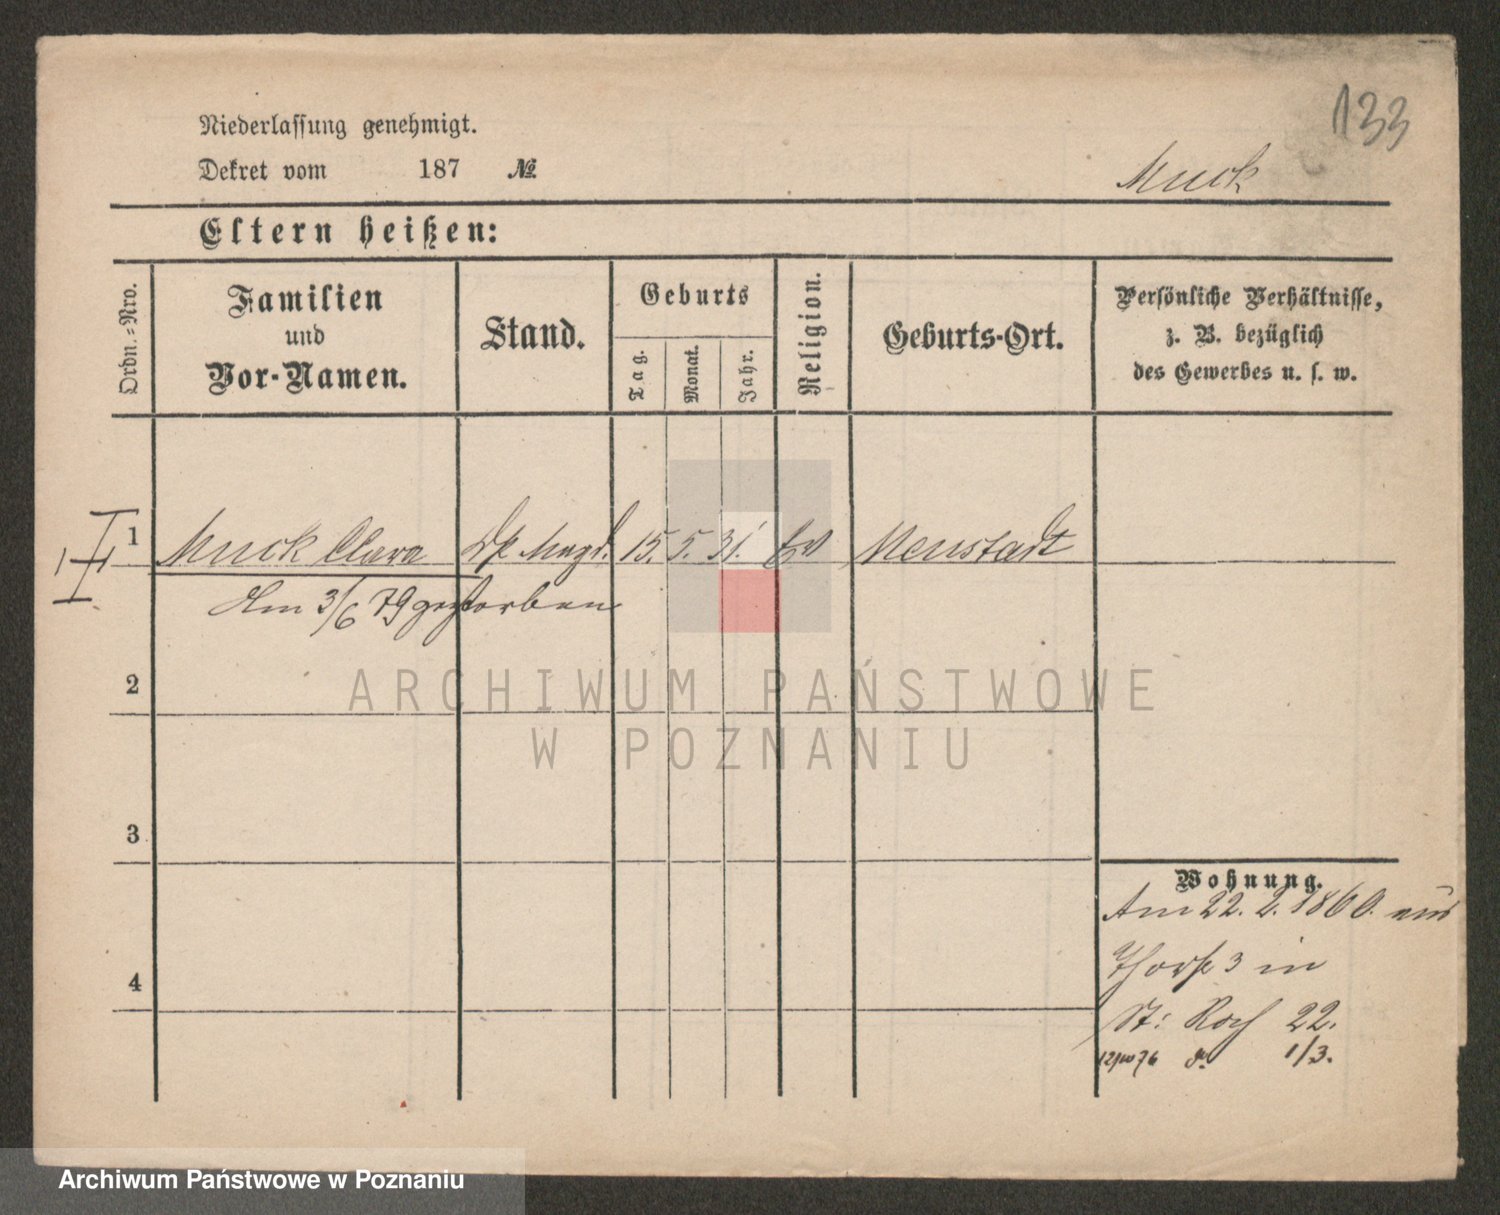 133
Niederlassung genehmigt.
Dekret vom 187 №
Muck
Eltern heißen:
Ordn.-Nro.
Familien und Vor-Namen.
Stand.
Geburts
Tag.
Monat.
Jahr.
Religion.
Geburts-Ort.
Persönliche Verhältnisse, z. B. bezüglich des Gewerbes u. s. w.
1 Muck Clara 15. 5. 31. Ev Neustadt
Am 3/6 79 gestorben
2
ARCHIWUM PAŃSTWOWE
W POZNANIU
3
Wohnung.
Am 22. 2. 1860. aus
3 in
4
St: Roch 22.
76 1/3.
Archiwum Państwowe w Poznaniu